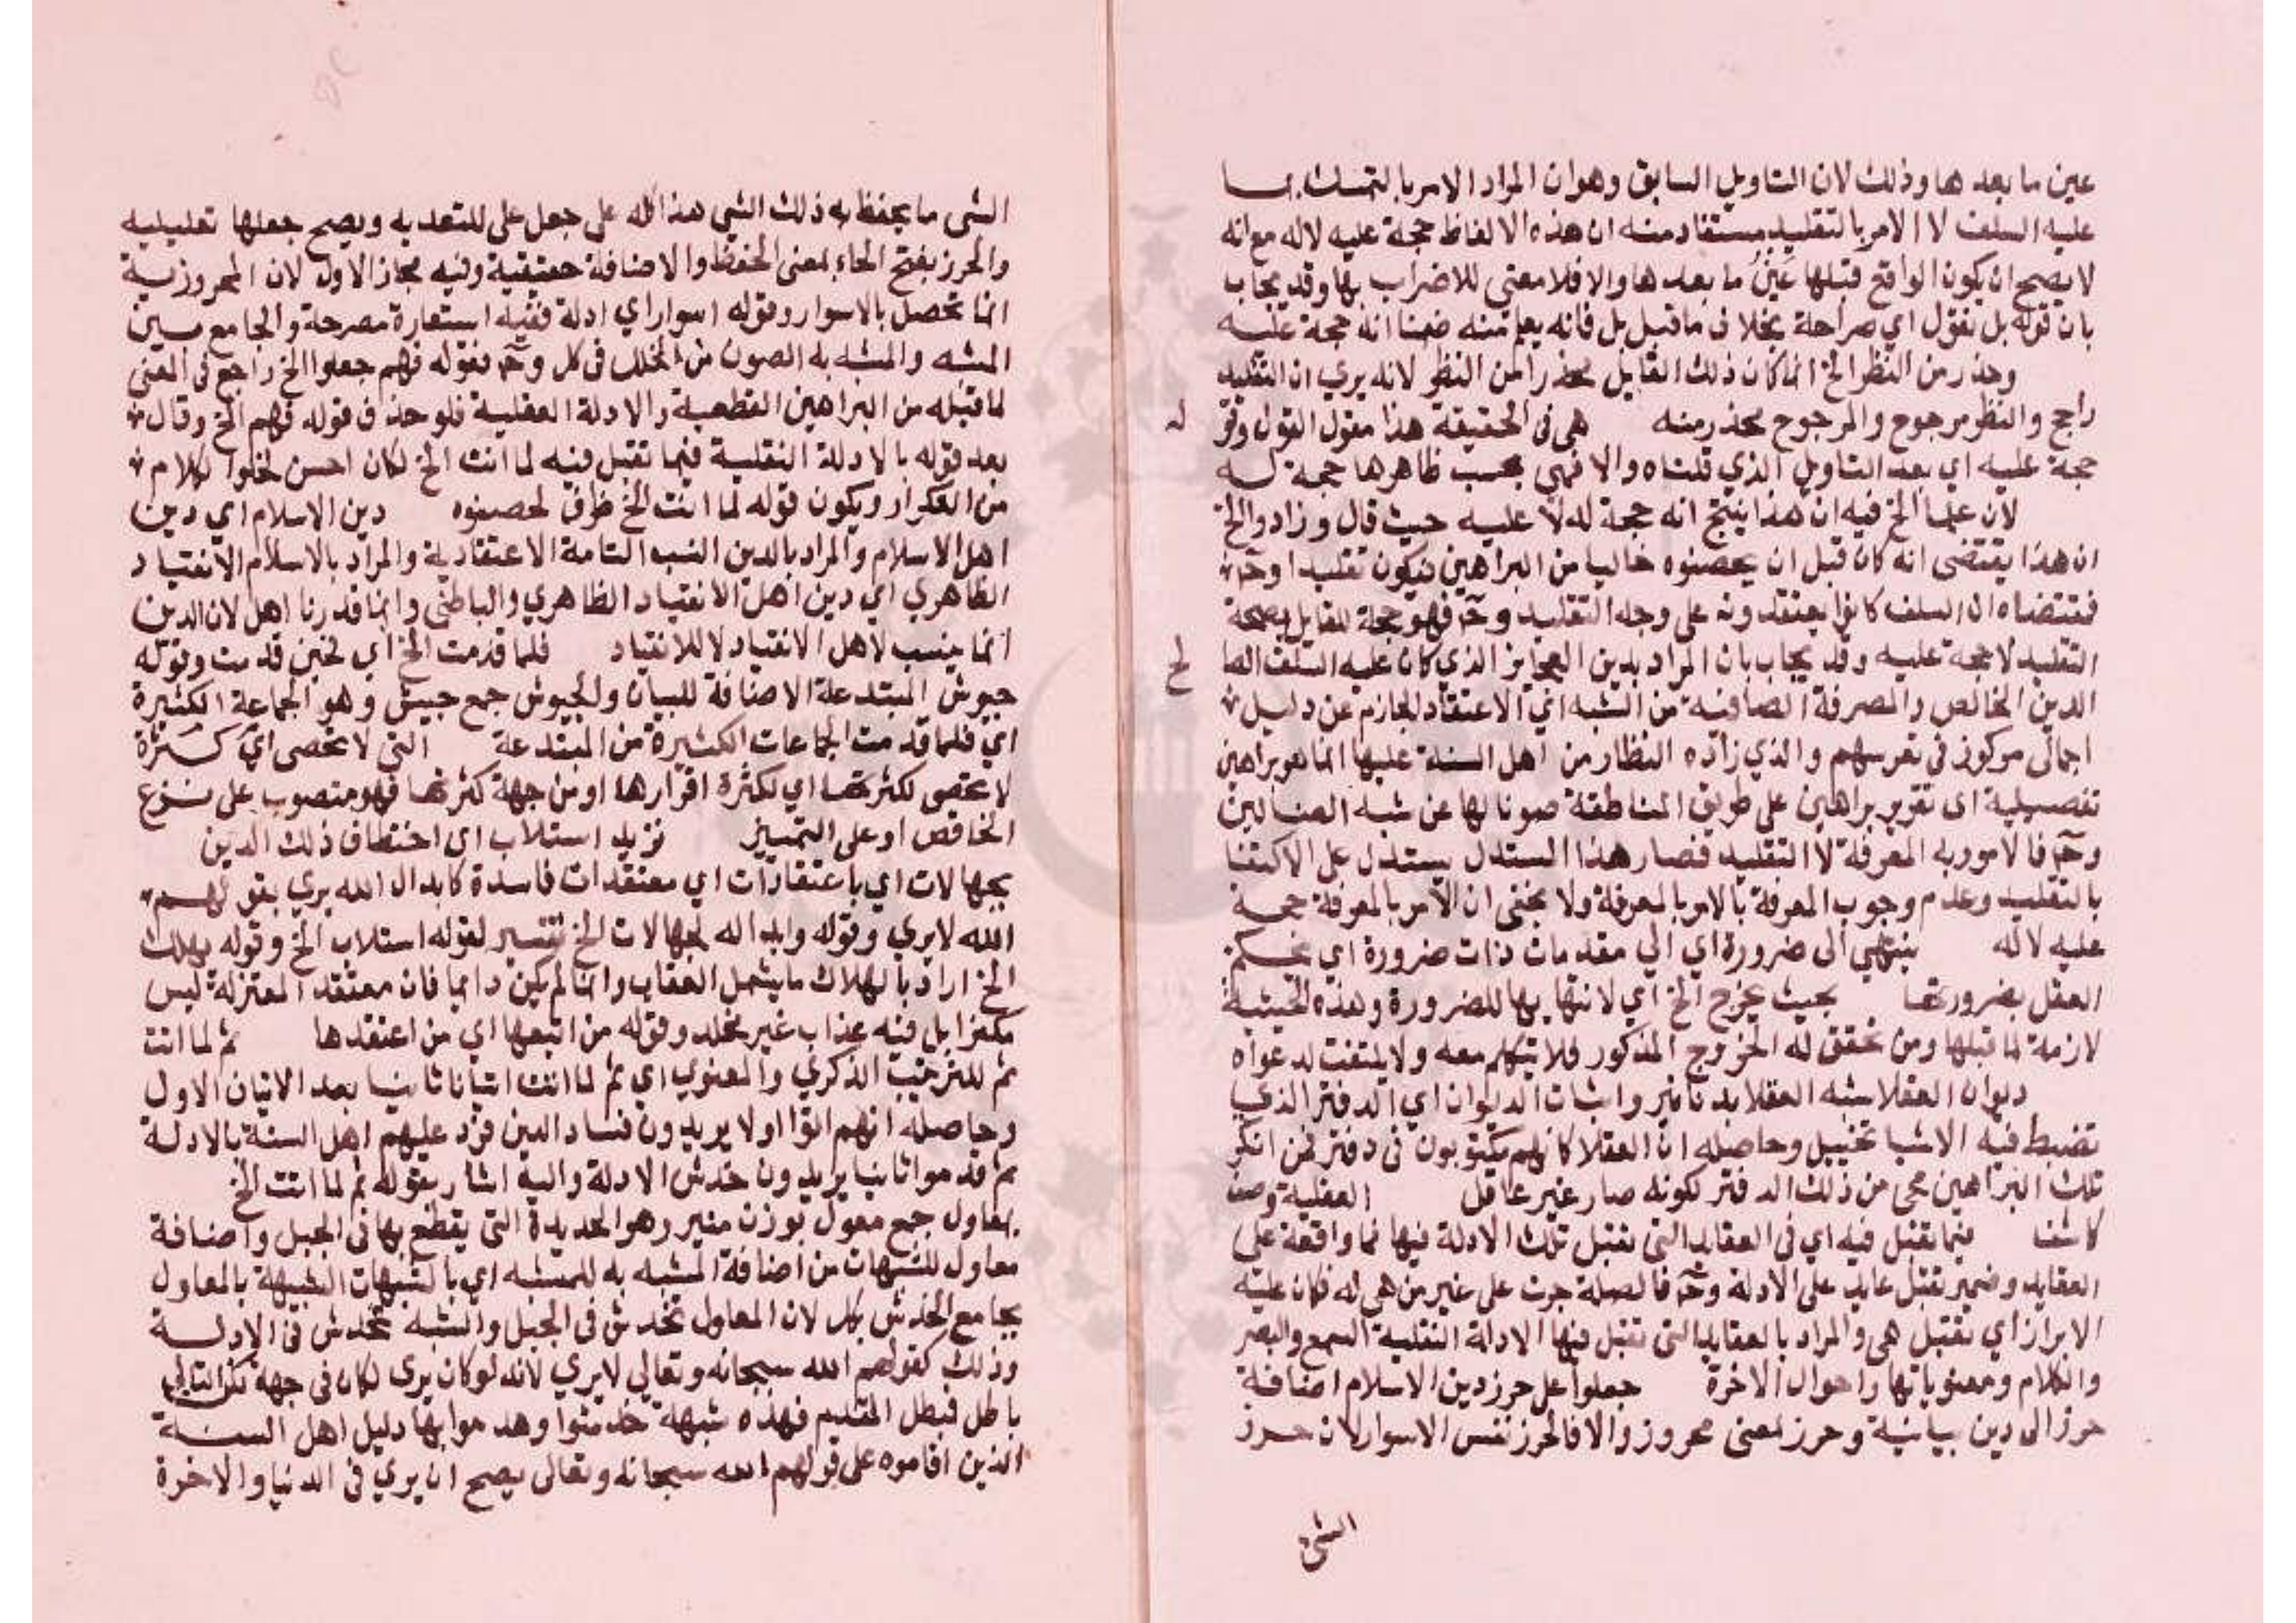 عين ما بعدها وذلك لان التاويل السابق وهو ان المراد الامر بالتمسك بما
عليه السلف لا الامر بالتقليد مستفاد منه ان هذه الالفاظ حجة عليه لا له مع انه
لا يصح ان يكون الواقع قبلها عين ما بعدها والا فلا معنى للاضراب بها وقد يجاب
بان قوله بل نقول اي صراحة بخلاف ما قبل بل فانه يعلم منه ضمنا انه حجة عليه
وحذر من النظر الخ انما كان ذلك القايل محذرا من النظر لانه يري ان التقليد
راجح والنظر مرجوح والمرجوح يحذر منه هي في الحقيقة هذا مقول القول وقو
له
حجة عليه اي بعد التاويل الذي قلناه والا فهي بحسب ظاهرها حجة له
لان علما الخ فيه ان هذا ينتج انه حجة له لا عليه حيث قال وزادوا الخ
ان هذا يقتضى انه كان قبل ان يحصنوه خاليا من البراهين فيكون تقليدا وح
فمقتضاه ان السلف كانوا يعتقدونه على وجه التقليد وح فهو حجة للقايل بصحة
التقليد لا حجة عليه وقد يجاب بان المراد بدين العجايز الذي كان عليه السلف الصا
لح
الدين الخالص والمعرفة الصافية من الشبه اي الاعتقاد الجازم عن دليل
اجمالى مركوز في نفوسهم والذي زاده النظار من اهل السنة عليها انما هو براهين
تفصيلية اى تقرير براهين على طريق المناطقة صونا لها عن شبه الضالين
وح فالامور به المعرفة لا التقليد فصار هذا المستدل يستدل على الاكتفا
بالتقليد وعدم وجوب المعرفة بالامر بالمعرفة ولا يخفى ان الامر بالمعرفة حجة
عليه لا له ينتهي الى ضرورة اي الي مقدمات ذات ضرورة اي يحكم
العقل بضرورتها بحيث يخرج الخ اي لانتهايها للضرورة وهذه الحيثية
لازمة لما قبلها ومن تحقق له الخروج المذكور فلا يتكلم معه ولا يلتفت لدعواه
ديوان العقلا شبه العقلا بدنانير واثبات الديوان اي الدفتر الذي
تضبط فيه الاشيا تخييل وحاصله ان العقلا كانهم مكتوبون في دفتر فمن انكر
تلك البراهين محى من ذلك الدفتر لكونه صار غير عاقل العقلية وصف
كاشف فيما تقبل فيه اي في العقايد التى تقبل تلك الادلة فيها فما واقعة على
العقايد وضمير تقبل عايد على الادلة وح فالصلة جرت على غير من هي له فكان عليه
الابراز اي تقبل هي والمراد بالعقايد التى تقبل فيها الادلة النقلية السمع والبصر
والكلام ومعنوياتها واحوال الاخرة جعلوا على حرز دين الاسلام اضافة
حرز الى دين بيانية وحرز بمعنى محروز والا فالحرز نفس الاسوار لان حرز
الشي
الشى ما يحفظ به ذلك الشي هذا كله على جعل على للتعديه ويصح جعلها تعليليه
والحرز بفتح الحاء بمعنى الحفظ والاضافة حقيقية وفيه مجاز الاول لان المحروزية
انما تحصل بالاسوار وقوله اسوار اي ادلة فشبه استعارة مصرحة والجامع بين
المشبه والمشبه به الصون من الخلل في كل وح فقوله فهم جعلوا الخ راجع في المعنى
لما قبله من البراهين القطعية والادلة العقلية فلو حذف قوله فهم الخ وقال
بعد قوله بالادلة النقلية فيما تقبل فيه لما اتت الخ لكان احسن لخلوا لكلام
من التكرار ويكون قوله لما اتت الخ ظرف لحصنوه دين الاسلام اي دين
اهل الاسلام والمراد بالدين النسب التامة الاعتقادية والمراد بالاسلام الانقياد
الظاهري اي دين اهل الانقياد الظاهري والباطني وانما قدرنا اهل لان الدين
انما ينسب لاهل الانقياد لا للانقياد فلما قدمت الخ اي فحين قدمت وقوله
جيوش المبتدعة الاضافة للبيان والجيوش جمع جيش وهو الجماعة الكثيرة
اي فلما قدمت الجماعات الكثيرة من المبتدعة التى لا تحصى اي كثرة
لا تحصى لكثرتها اي لكثرة افرارها او من جهة كثرتها فهو منصوب على نزع
الخافض او على التمييز تريد استلاب اى اختطاف ذلك الدين
بجهالات اي باعتقادات اي معتقدات فاسدة كابدال الله يري بقولهم
الله لا يري وقوله وابداله بجهالات الخ تفسير لقوله استلاب الخ وقوله يهلك
الخ اراد بالهلاك ما يشمل العقاب وان لم يكن دايما فان معتقد المعتزلة ليس
مكفرا بل فيه عذاب غير مخلد وقوله من اتبعها اي من اعتقدها ثم لما اتت
ثم للترتيب الذكري والمعنوي اي ثم لما اتت اتيانا ثانيا بعد الاتيان الاول
وحاصله انهم اتوا اولا يريدون فساد الدين فرد عليهم اهل السنة بالادلة
ثم قدموا ثانيا يريدون خدش الادلة واليه اشار بقوله ثم لما اتت الخ
بمعاول جمع معول بوزن منبر وهو الحديدة التى يقطع بها في الجبل واضافة
معاول للشبهات من اضافة المشبه به للمشبه اي بالشبهات الشبيهة بالمعاول
بجامع الخدش بكل لان المعاول تخدش في الجبل والشبه تخدش في الادلة
وذلك كقولهم الله سبحانه وتعالي لا يري لانه لو كان يرى لكان في جهة لكن التالي
باطل فبطل المقدم فهذه شبهة خدشوا وهدموا بها دليل اهل السنة
الذين اقاموه على قولهم الله سبحانه وتعالى يصح ان يري في الدنيا والاخرة